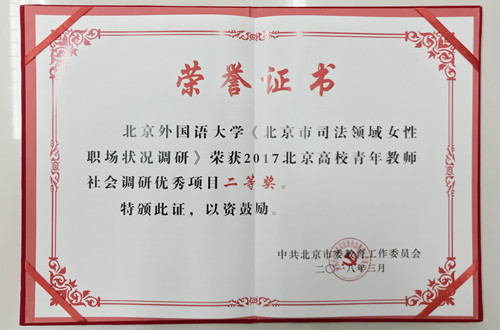 荣誉证书
北京外国语大学《北京市司法领域女性
职场状况调研》荣获2017北京高校青年教师
社会调研优秀项目二等奖。
特颁此证，以资鼓励。
中共北京市委教育工作委员会
二〇一八年三月